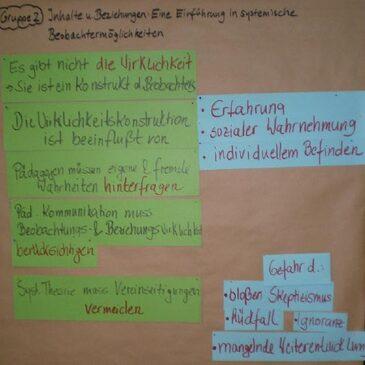 Gruppe 2
Inhalte u. Beziehungen. Eine Einführung in systemische
Beobachtermöglichkeiten
Es gibt nicht die Wirklichkeit
→ Sie ist ein Konstrukt d. Beobachters
Die Wirklichkeitskonstruktion
ist beeinflußt von
• Erfahrung
• sozialer Wahrnehmung
• individuellem Befinden
Pädagogen müssen eigene & fremde
Wahrheiten hinterfragen
Päd. Kommunikation muss
Beobachtungs- & Beziehungswirklichkeit
berücksichtigen
Syst. Theorie muss Vereinseitigungen
vermeiden
Gefahr d.:
• bloßen Skeptizismus
• Rückfall • Ignoranz
• mangelnde Weiterentwicklung